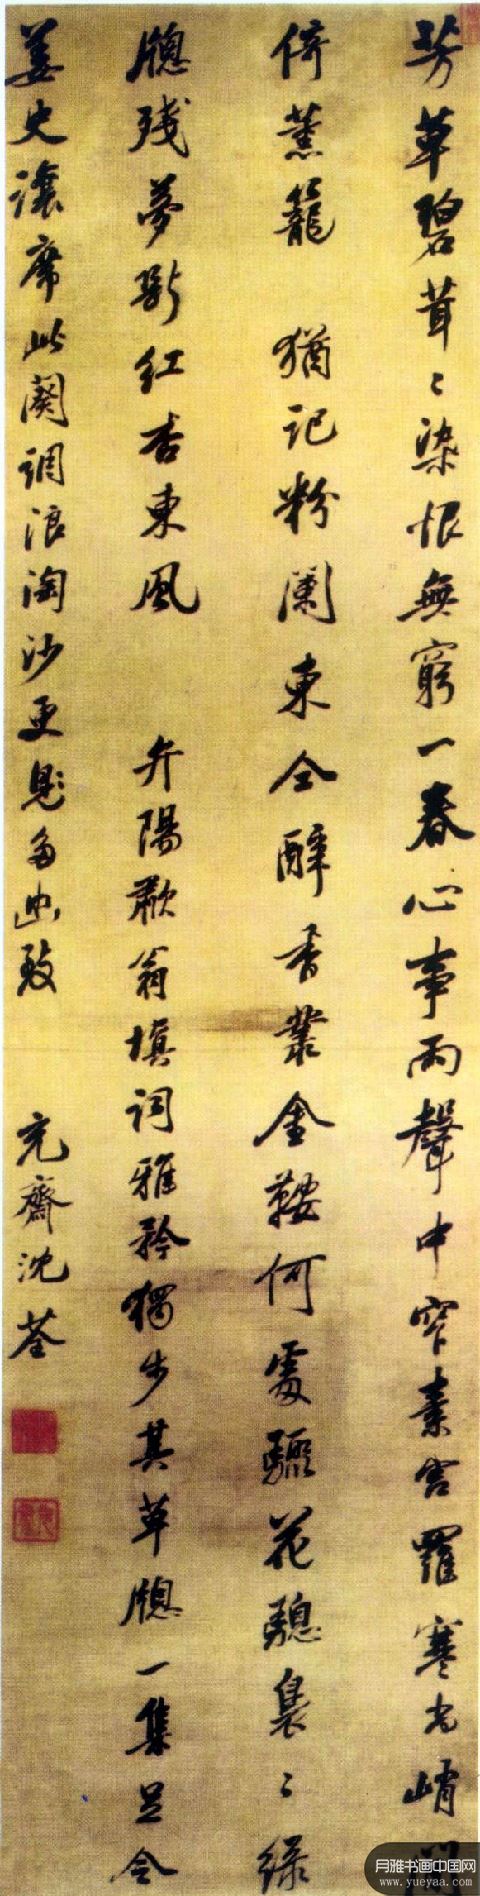 芳草碧茸〻染恨無窮一春心事雨聲中窄素宮羅寒尚峭
倚薰籠 猶記粉闌東仝醉香叢金鞍何處驟花驄裊〻綠
牕殘夢斷紅杏東風 弁陽歗翁填詞雅矜獨步其草牕一集足令
姜史讓席此闋調浪淘沙更多幽致 充齋沈荃
月雅书画中国网
www.yueyaa.com